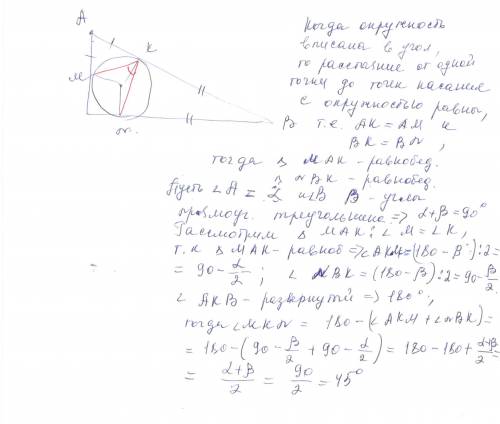 A
K
M
N
B
Когда окружность
вписана в угол,
то расстояние от одной
точки до точек касания
с окружностью равны,
т.е. AK = AM и
BK = BN,
тогда △ MAK - равнобед.
△ NBK - равнобед.
Пусть ∠A = α и ∠B β - углы
прямоуг. треугольника => α+β = 90°
Рассмотрим △ MAK: ∠M = ∠K,
т.к △ MAK - равноб => ∠AKM = (180 - β):2 =
= 90 - α/2 ; ∠ NBK = (180 - β):2 = 90 - β/2
∠ AKB - развернутый => 180°,
тогда ∠MKN = 180 - (∠AKM + ∠NBK) =
= 180 - (90 - β/2 + 90 - α/2) = 180 - 180 + α+β/2 =
= α+β/2 = 90/2 = 45°